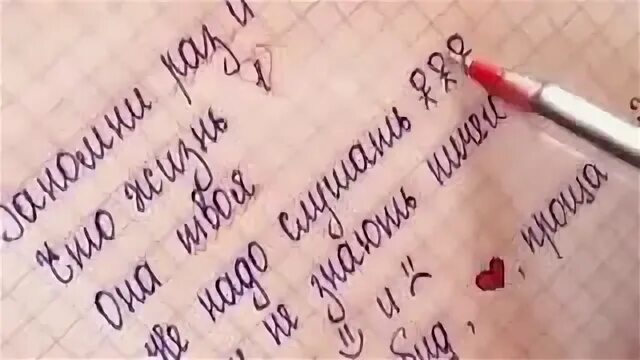 Запомни раз и
что жизнь
она твоя
не надо слушать
не знають ничего
и
, проща